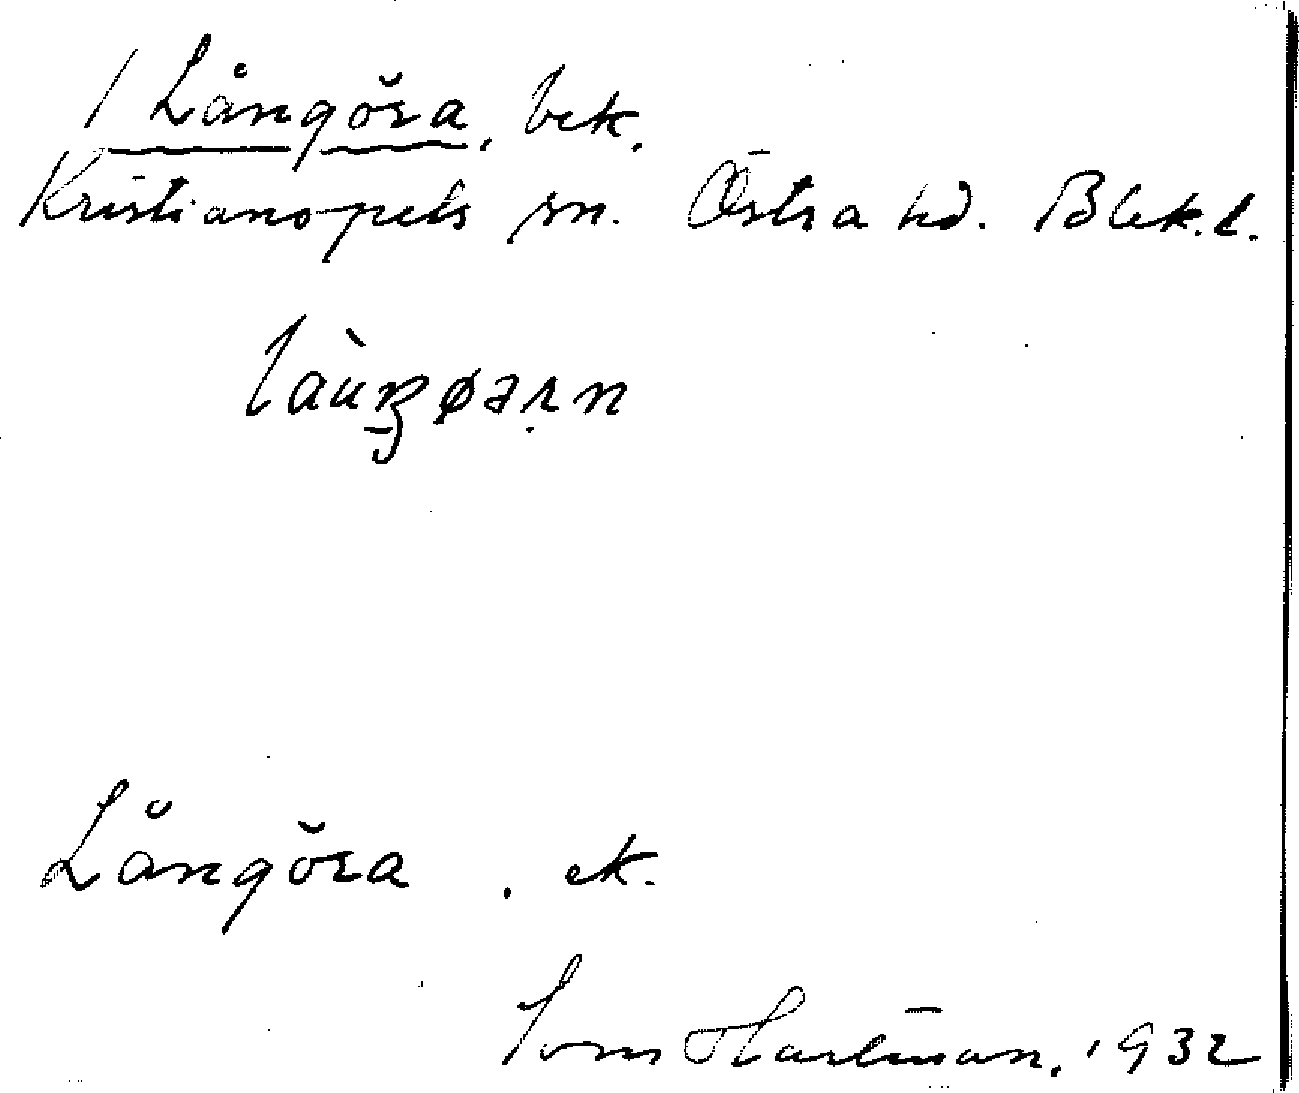 1 Långöra, bek.
Kristianopels sn. Östra hd. Blek.l.
Långöra . ek.
Hartman, 1932